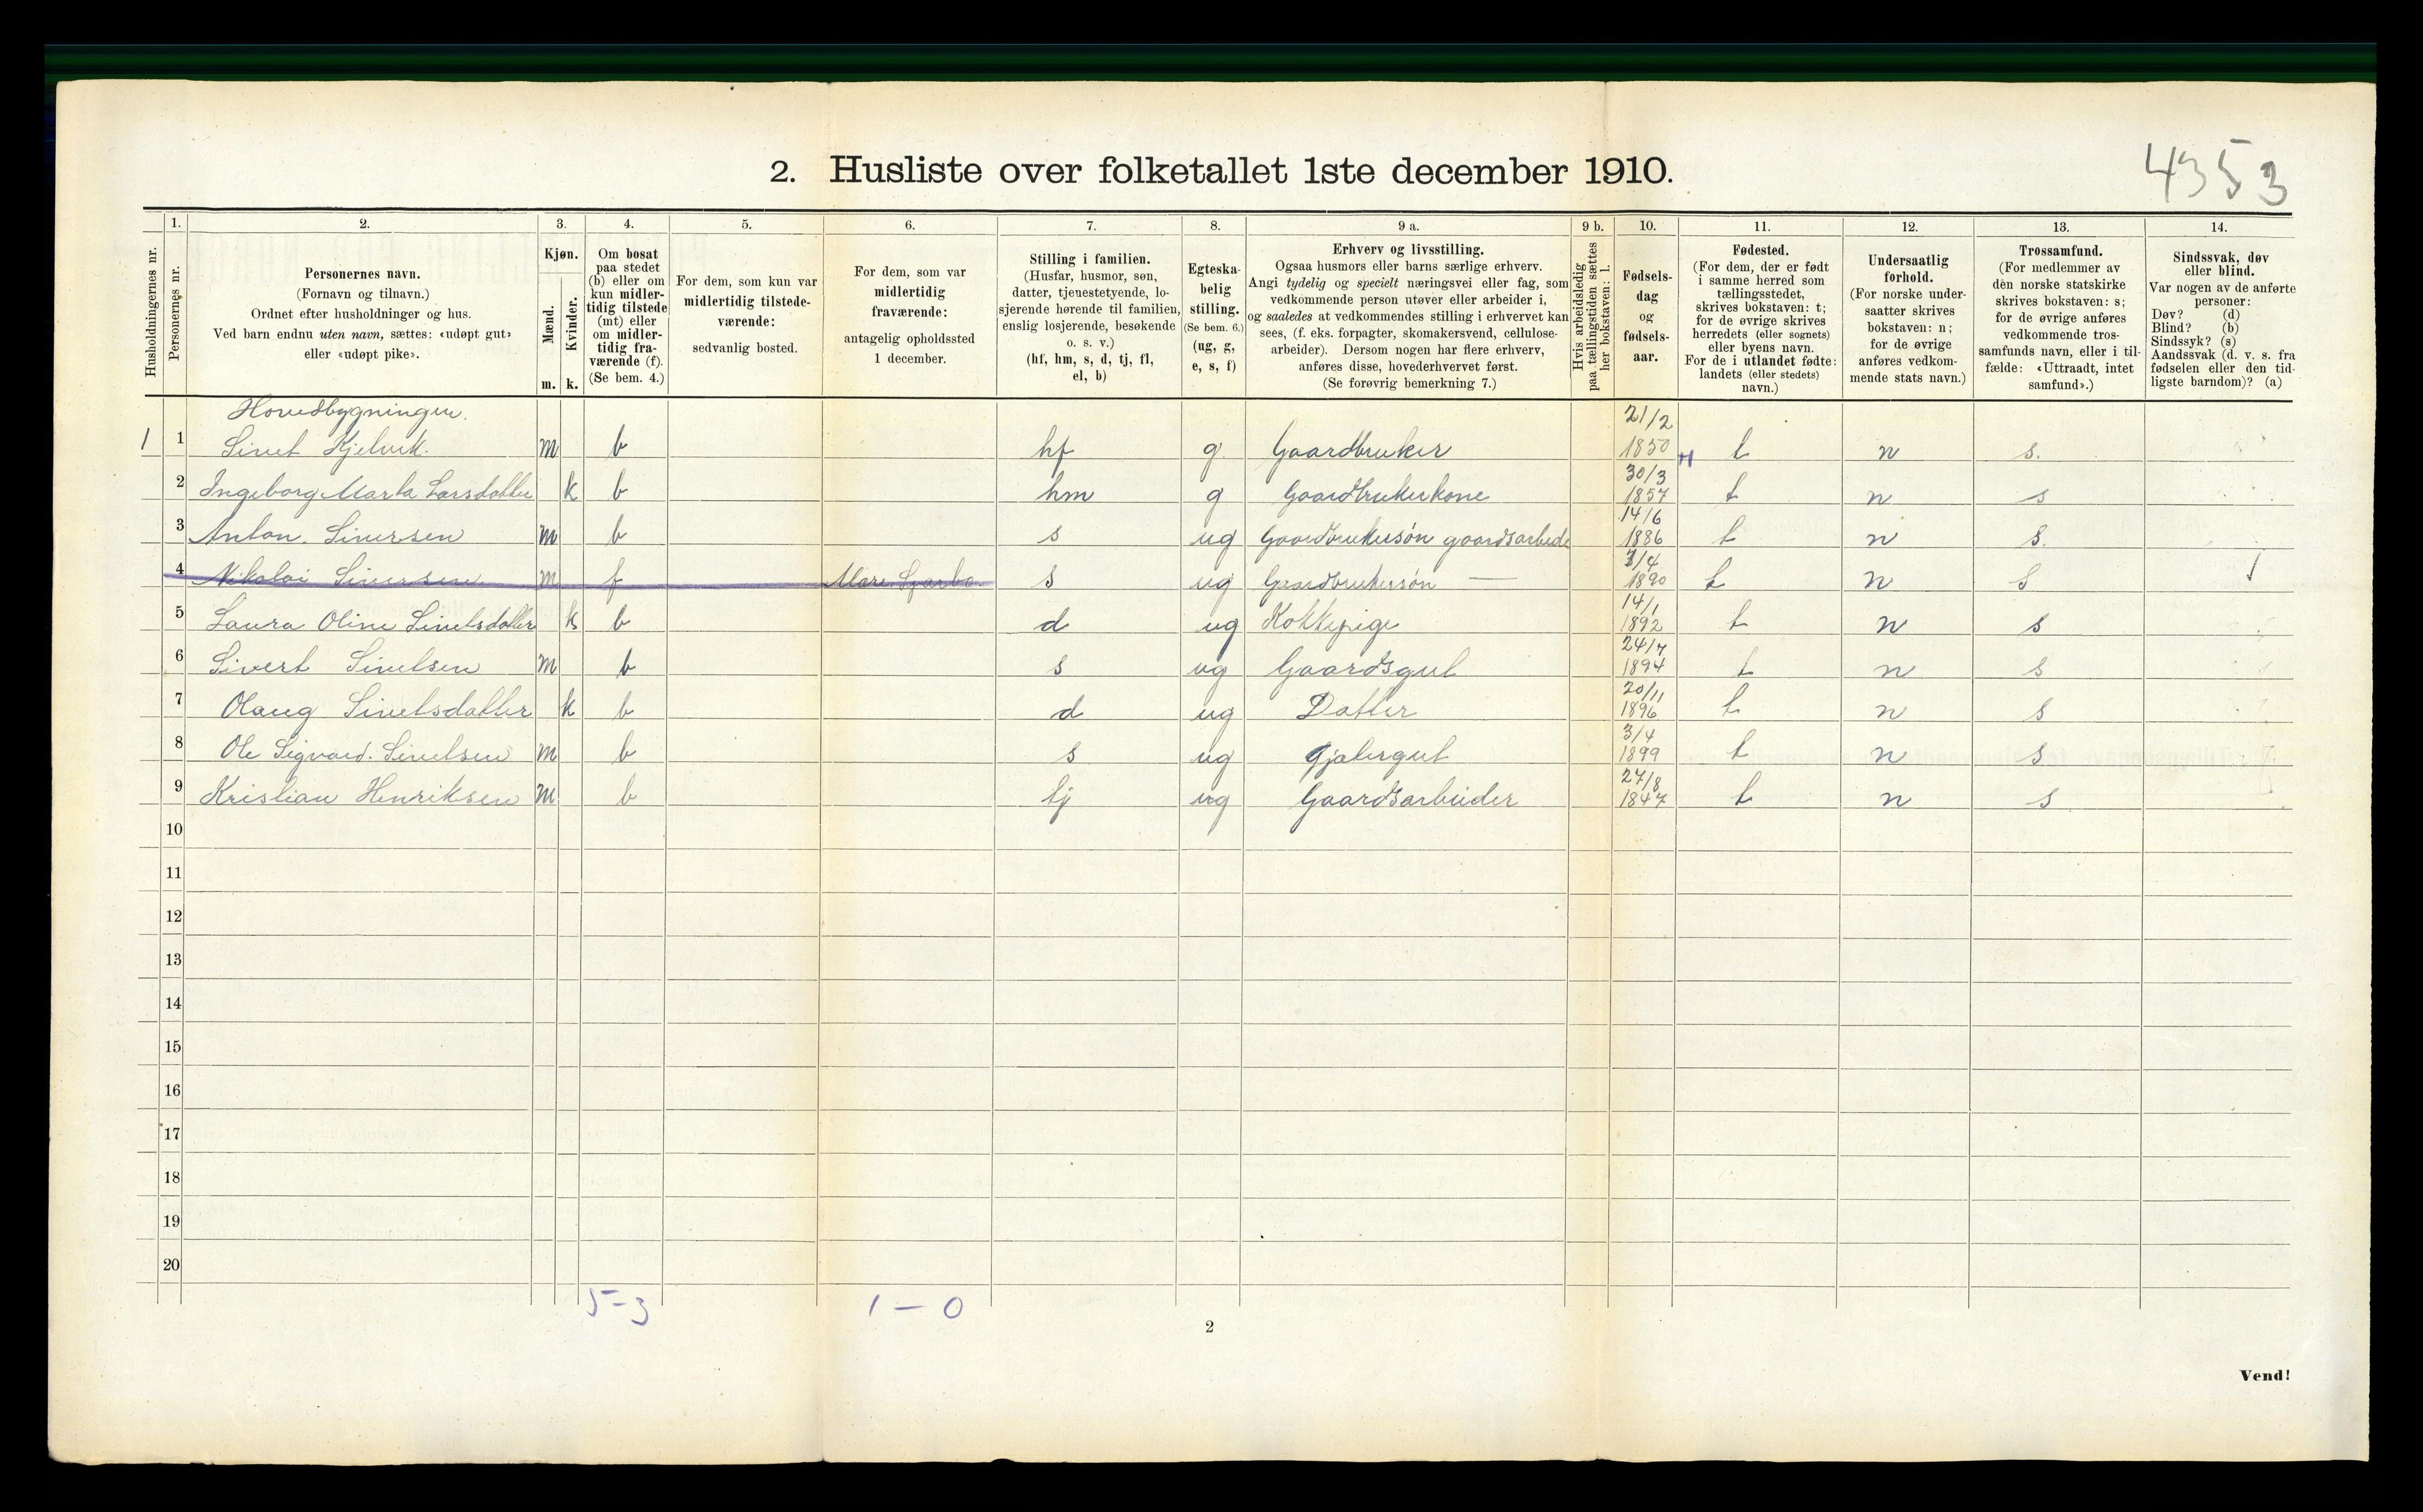 4353
2. Husliste over folketallet 1ste december 1910.
1. 2. 3. 4. 5. 6. 7. 8. 9 a. 9 b. 10. 11. 12. 13. 14.
Husholdningernes nr.
Personernes nr.
Personernes navn.
(Fornavn og tilnavn.)
Ordnet efter husholdninger og hus.
Ved barn endnu uten navn, sættes: «udøpt gut»
eller «udøpt pike».
Kjøn.
Mænd.
Kvinder.
m. k.
Om bosat
paa stedet
(b) eller om
kun midler-
tidig tilstede
(mt) eller
om midler-
tidig fra-
værende (f).
(Se bem. 4.)
For dem, som kun var
midlertidig tilstede-
værende:
sedvanlig bosted.
For dem, som var
midlertidig
fraværende:
antagelig opholdssted
1 december.
Stilling i familien.
(Husfar, husmor, søn,
datter, tjenestetyende, lo-
sjerende hørende til familien,
enslig losjerende, besøkende
o. s. v.)
(hf, hm, s, d, tj, fl,
el, b)
Egteska-
belig
stilling.
(Se bem. 6.)
(ug, g,
e, s, f)
Erhverv og livsstilling.
Ogsaa husmors eller barns særlige erhverv.
Angi tydelig og specielt næringsvei eller fag, som
vedkommende person utøver eller arbeider i,
og saaledes at vedkommendes stilling i erhvervet kan
sees, (f. eks. forpagter, skomakersvend, cellulose-
arbeider). Dersom nogen har flere erhverv,
anføres disse, hovederhvervet først.
(Se forøvrig bemerkning 7.)
Hvis arbeidsledig
paa tællingstiden sættes
her bokstaven: l.
Fødsels-
dag
og
fødsels-
aar.
Fødested.
(For dem, der er født
i samme herred som
tællingsstedet,
skrives bokstaven: t;
for de øvrige skrives
herredets (eller sognets)
eller byens navn.
For de i utlandet fødte:
landets (eller stedets)
navn.)
Undersaatlig
forhold.
(For norske under-
saatter skrives
bokstaven: n;
for de øvrige
anføres vedkom-
mende stats navn.)
Trossamfund.
(For medlemmer av
den norske statskirke
skrives bokstaven: s;
for de øvrige anføres
vedkommende tros-
samfunds navn, eller i til-
fælde: «Uttraadt, intet
samfund».)
Sindssvak, døv
eller blind.
Var nogen av de anførte
personer:
Døv? (d)
Blind? (b)
Sindssyk? (s)
Aandssvak (d. v. s. fra
fødselen eller den tid-
ligste barndom)? (a)
Hovedbygningen.
1 1 Sivert Kjelvik. m b hf g Gaardbruker 21/2 1850 t n s.
2 Ingeborg Marta Larsdatter k b hm g Gaardbrukerkone 30/3 1857 t n s
3 Anton. Siversen m b s ug Gaardbrukersøn gaardsarbeide 14/6 1886 t n s.
4 Nikolai Siversen m f s ug Gaardbrukersøn — 7/4 1890 t n s
5 Laura Oline Sivertsdatter k b d ug Kokkepige 14/1 1892 t n s
6 Sivert Sivertsen m b s ug Gaardsgut 24/7 1894 t n s
7 Olaug Sivertsdatter k b d ug Datter 20/11 1896 t n s
8 Ole Sigvard. Sivertsen m b s ug Gjætergut 3/4 1899 t n s
9 Kristian Henriksen m b tj ug Gaardsarbeider 27/8 1847 t n s
10
11
12
13
14
15
16
17
18
19
20
5-3 1-0
2
Vend!